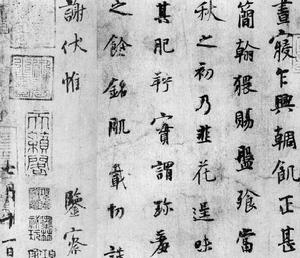 晝寢乍興輖飢正甚
簡翰猥賜盤飧當
秋之初乃韭花逞味
其肥羜實謂珍羞
之餘銘肌載切謹
謝伏惟　鑒察
七月十一日
天籟閣